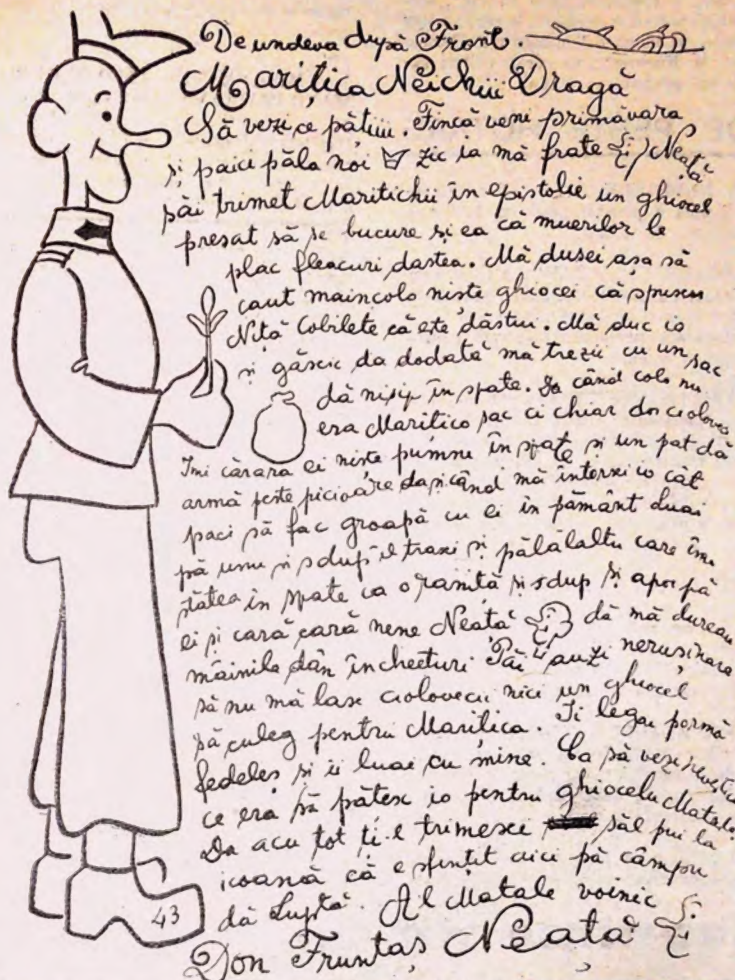 De undeva după Front.
Marițica Neichii Dragă
Să vezi ce pățiiii. Fincă veni primăvara
și paici păla noi zic ia mă frate Neață
păi trimet Maritichii în epistolie un ghiocel
presat să se bucure și ea că muerilor le
plac fleacuri dastea. Mă dusei așa să
caut maincolo niste ghiocei că spusese
Niță Cobilete că este dăștui. Mă duc io
și găsesc da dodată mă trezii cu un sac
dă nisip în spate. Da când colo nu
era Maritico sac ci chiar doi ciolovec
Îmi cărara ei niste pumni în spate și un pat dă
armă peste picioare dar când mă întorsei io cât
paci să fac groapă cu ei în pământ luai
pă unu și sdup îl trasei și pălălaltu care îmi
stătea în spate ca o raniță și sdup și apoi pă
ei și cară cară nene Neață dă mă dureau
mâinile dân încheeturi Păi auzi nerușinare
să nu mă lase ciolovecii nici un ghiocel
să culeg pentru Maritica. Îi legai pormă
fedeleș și îi luai cu mine. Ca să vezi
ce era să pățesc io pentru ghiocelu Matale
Da acu tot ți-l trimesei săl pui la
icoană că e sfințit aici pă câmpu
dă Luptă. Al Matale voinic
Don Fruntaș Neață
43